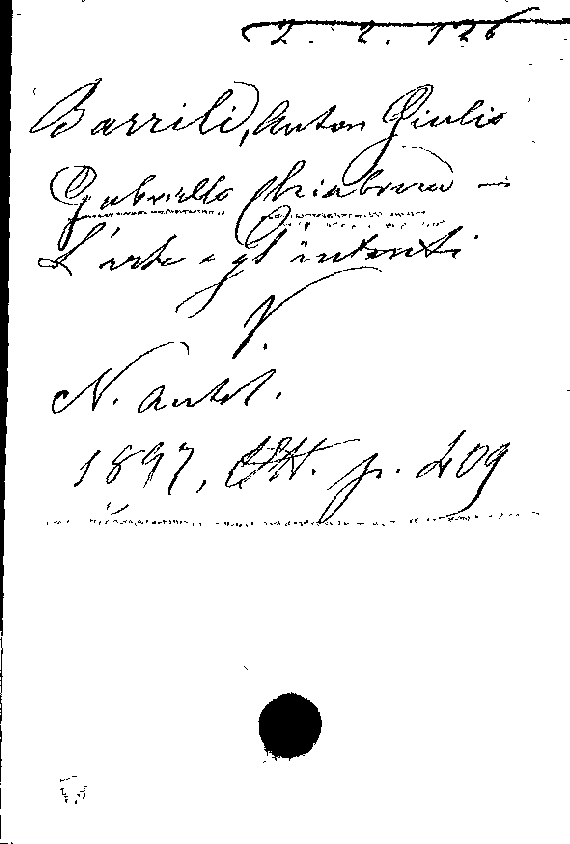 2. 2. 126
Barrili, Anton Giulio
Gabriello Chiabrera —
L'arte e gl'intenti
V.
N. Antol.
1897, Ott. p. 409